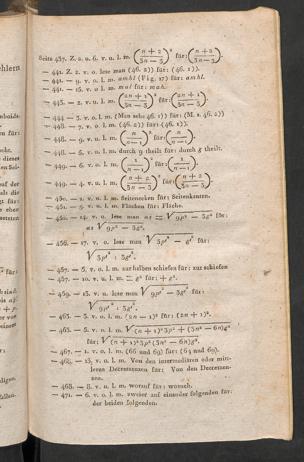 Seite 437. Z. 2. u. 6. v. u. l. m. (n + 2 / 3n − 3)² für: (n + 2 / 3n − 3).
— 441. Z. 2. v. o. lese man (46. 2)) für: (46. 1)).
— 441. — 9. v. o. l. m. amhl (Fig. 17) für: amhl.
— 441. — 15. v. o. l. m. mal für: mah.
— 443. — 2. v. u. l. m.
— 444. — 3. v. o. l. m. (Man sehe 46. 1)) für: (M. s. 46. 2))
— 448. — 7. v. o. l. m. (46. 2)) für: (46. 1)).
— 448. — 9. v. u. l. m. (n / n−1)² für: (n / n−1).
— 448. — 5. v. u. l. m. durch q theilt für: durch g theilt.
— 449. — 6. v. o. l. m. (1 / n−1)² für: (1 / n−1).
— 449. — 4. v. u. l. m. (n + 2 / 3n − 3)² für: (n + 2 / 3n − 3).
v. u. l. m. Seitenecken für: Seitenkanten.
v. o. l. m. Flächen für: Fläche.
v. o. lese man as = √9p² − 3g² für:
as √9p² − 3g².
— 456. — 17. v. o. lese man √3p² − g² für:
√3p² . 3g².
— 457. — 5. v. o. l. m. zur halben schiefen für: zur schiefen
— 457. — 10. v. u. l. m. — g² für: + g².
— 459. — 13. v. u. lese man √9p² − 3g² für:
√9p² . 3g².
— 463. — 3. v. o. l. m. (2n − 1)² für: (2n + 1)².
— 463. — 5. v. o. l. m. √(n + 1)²3p² + (3n² − 6n)g²
für: √(n + 1)²3p²(3n² − 6n)g².
— 467. — 1. v. o. l. m. (66 und 69) für: (64 und 69).
— 468. — 15. v. o. l. m. Von den intermediären oder mitt-
leren Decrementen für: Von den Decremen-
ten.
— 468. — 8. v. u. l. m. worauf für: wonach.
— 471. — 6. v. o. l. m. zweier auf einander folgenden für:
der beiden folgenden.